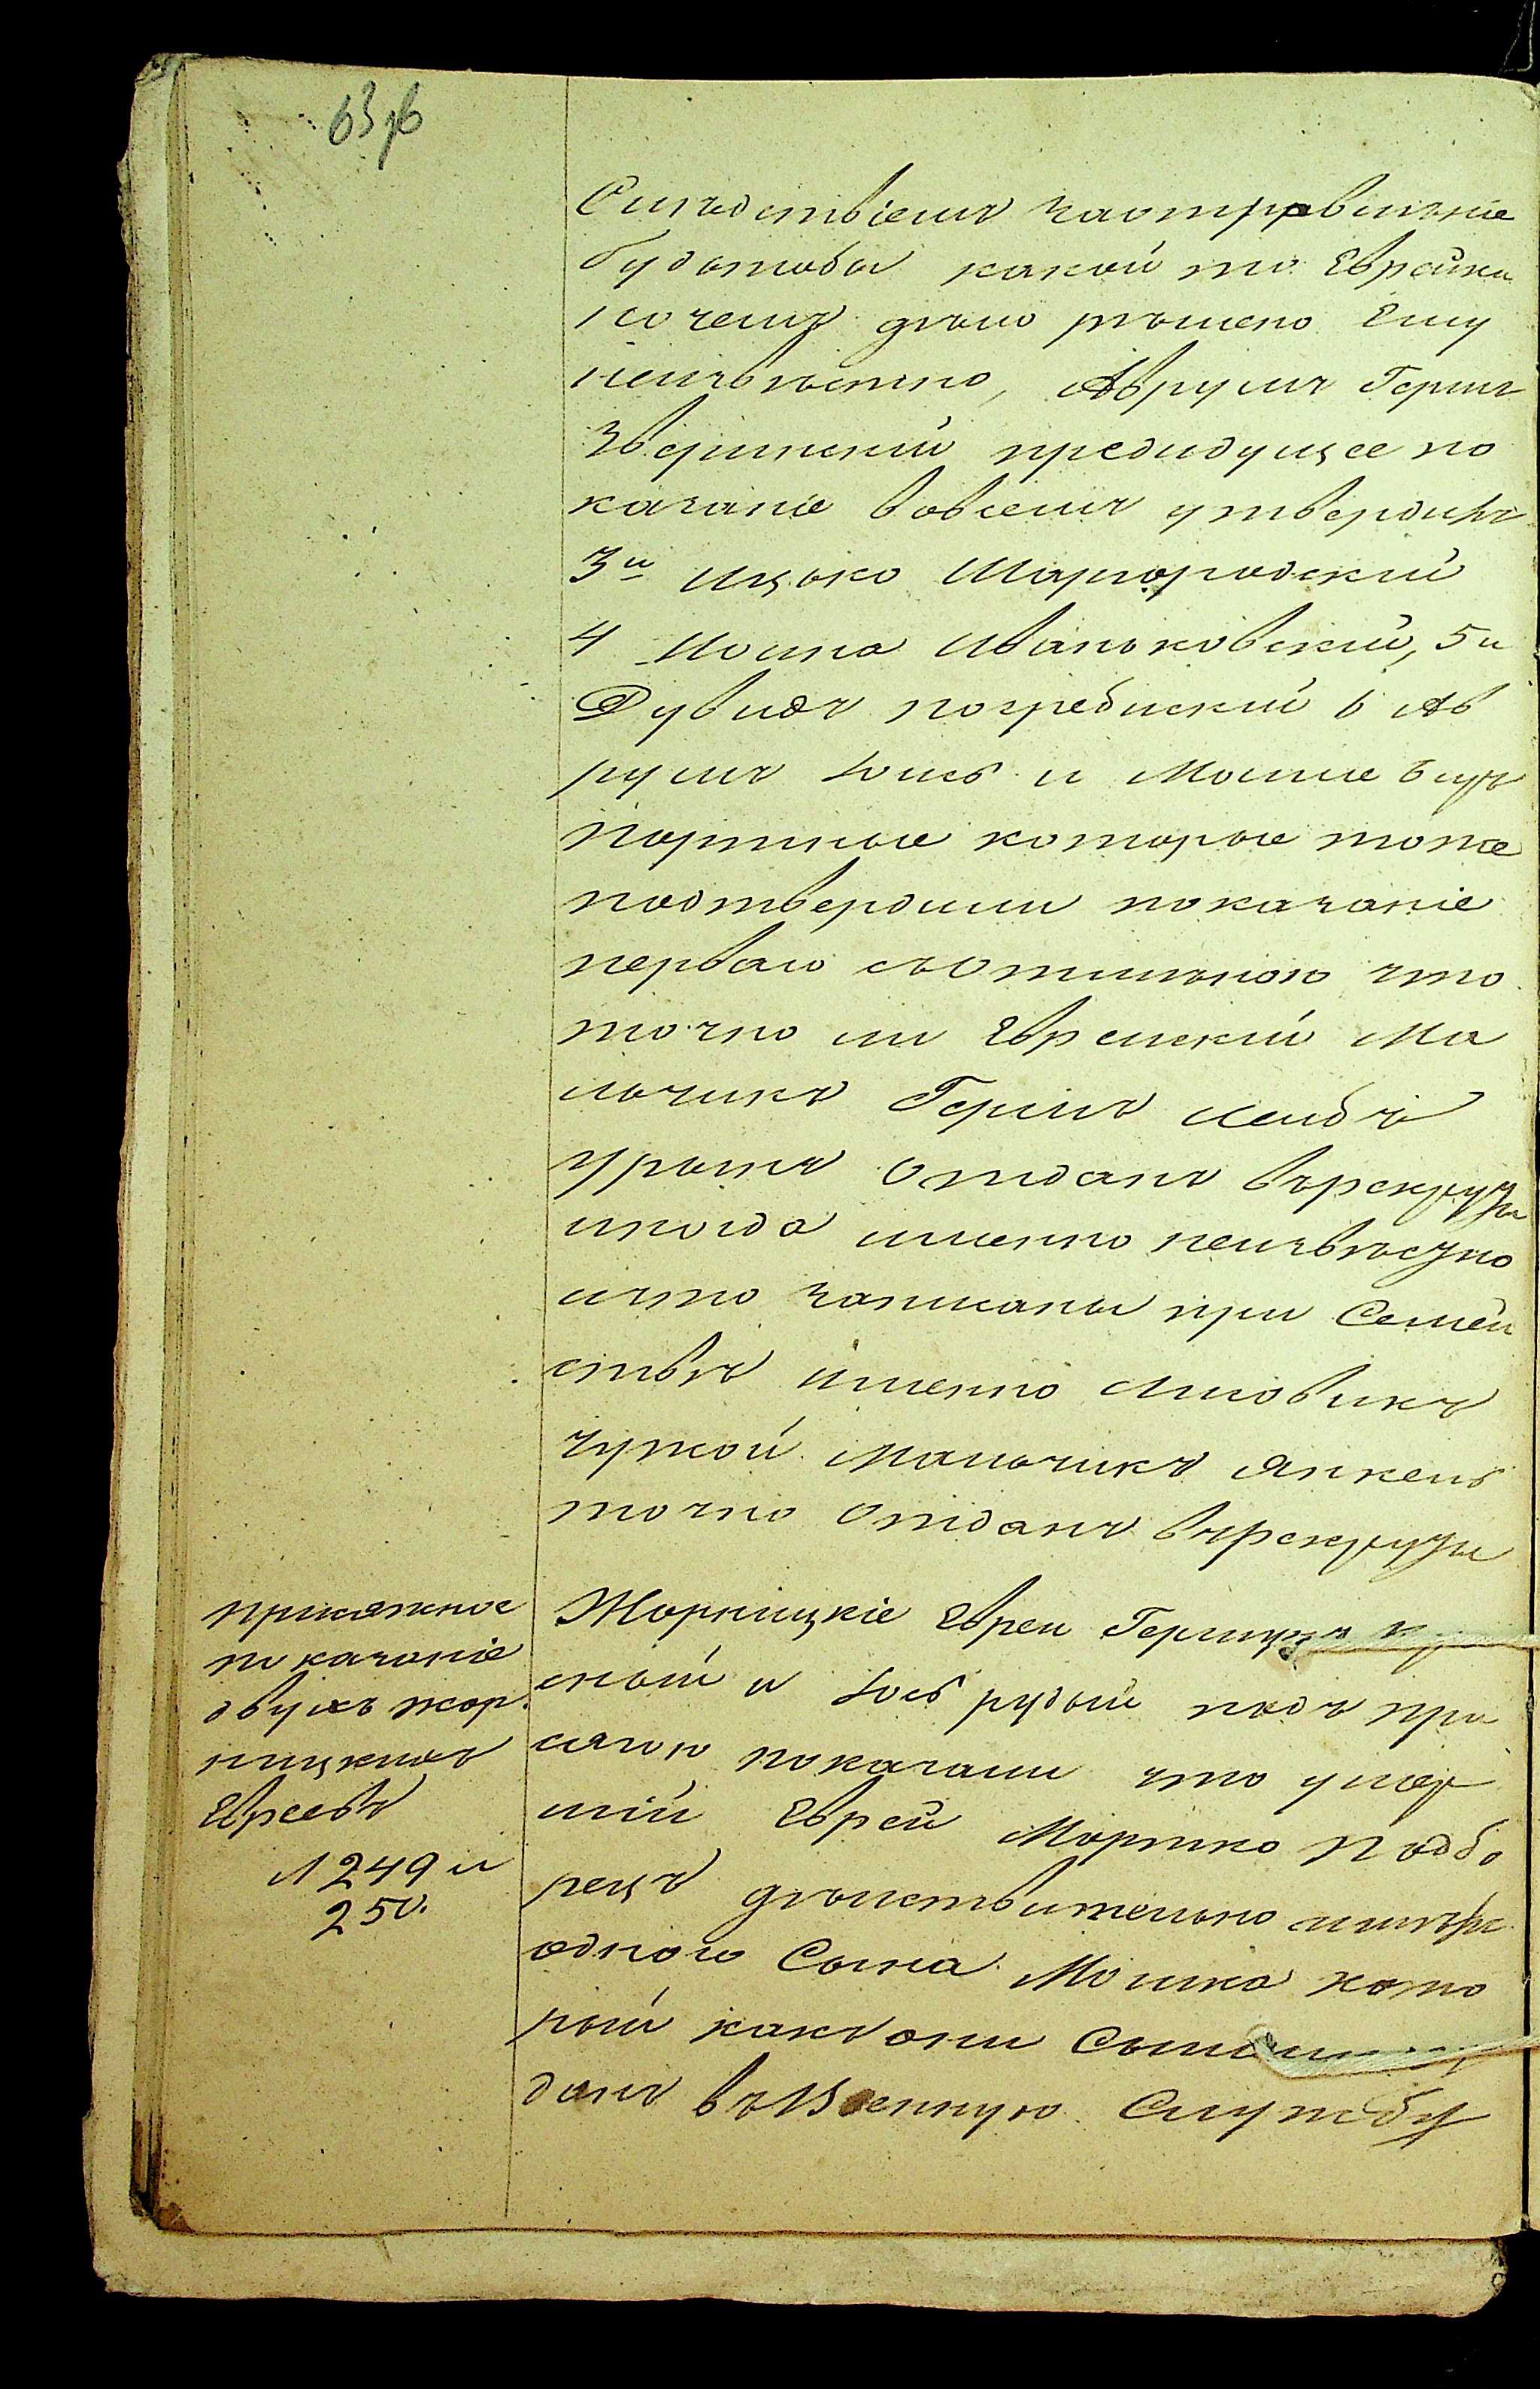 63 об
Слѣдствіемъ заотравленіе
будьтобы какой то Еврейки
ночемъ дѣло рѣшено Ему
неизвѣстно, Аврумъ Герш
Зверинскій предидущее по
казаніе вовсемъ утвердилъ
3й Ицько Шаргородскій
4 Мошка Иваньковскій, 5й
Дувидъ погребискій 6 Ав
румъ Іось и Мошие
портные которые тоже
подтвердили показаніе
перваго съОтмѣною что
точно ли Еврейский Ма
льчикъ Гершъ Лейбъ
Отданъ врекруты
икогда именно неизвѣстно
ичто записаны при Семей
ствѣ именно
чужой Мальчикъ Янкель
точно Отданъ врекруты
присяжное
показаніе
двухъ жор
нищкихъ
Евреевъ
л 249 и
250.
Жорнищкіе Евреи
сный и Іось рудый подъ при
сягою показали что умер
шій Еврей Мортко Подбо
рецъ дѣйствительно имѣлъ
одного Сына Мошка кото
рый какъ они
данъ въ Военную Службу